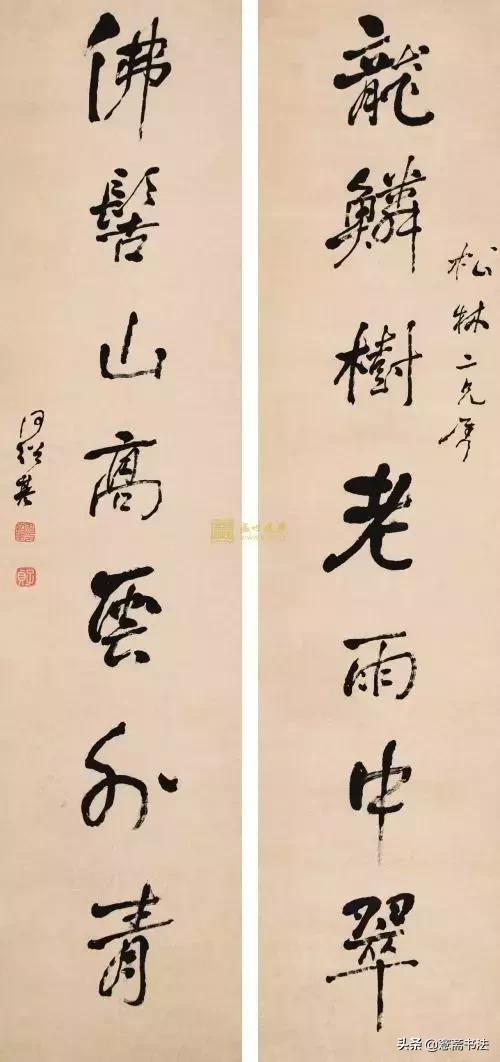 松林二兄属
龍鱗樹老雨中翠
佛髻山高雲外青
何紹基
头条@窓斋书法